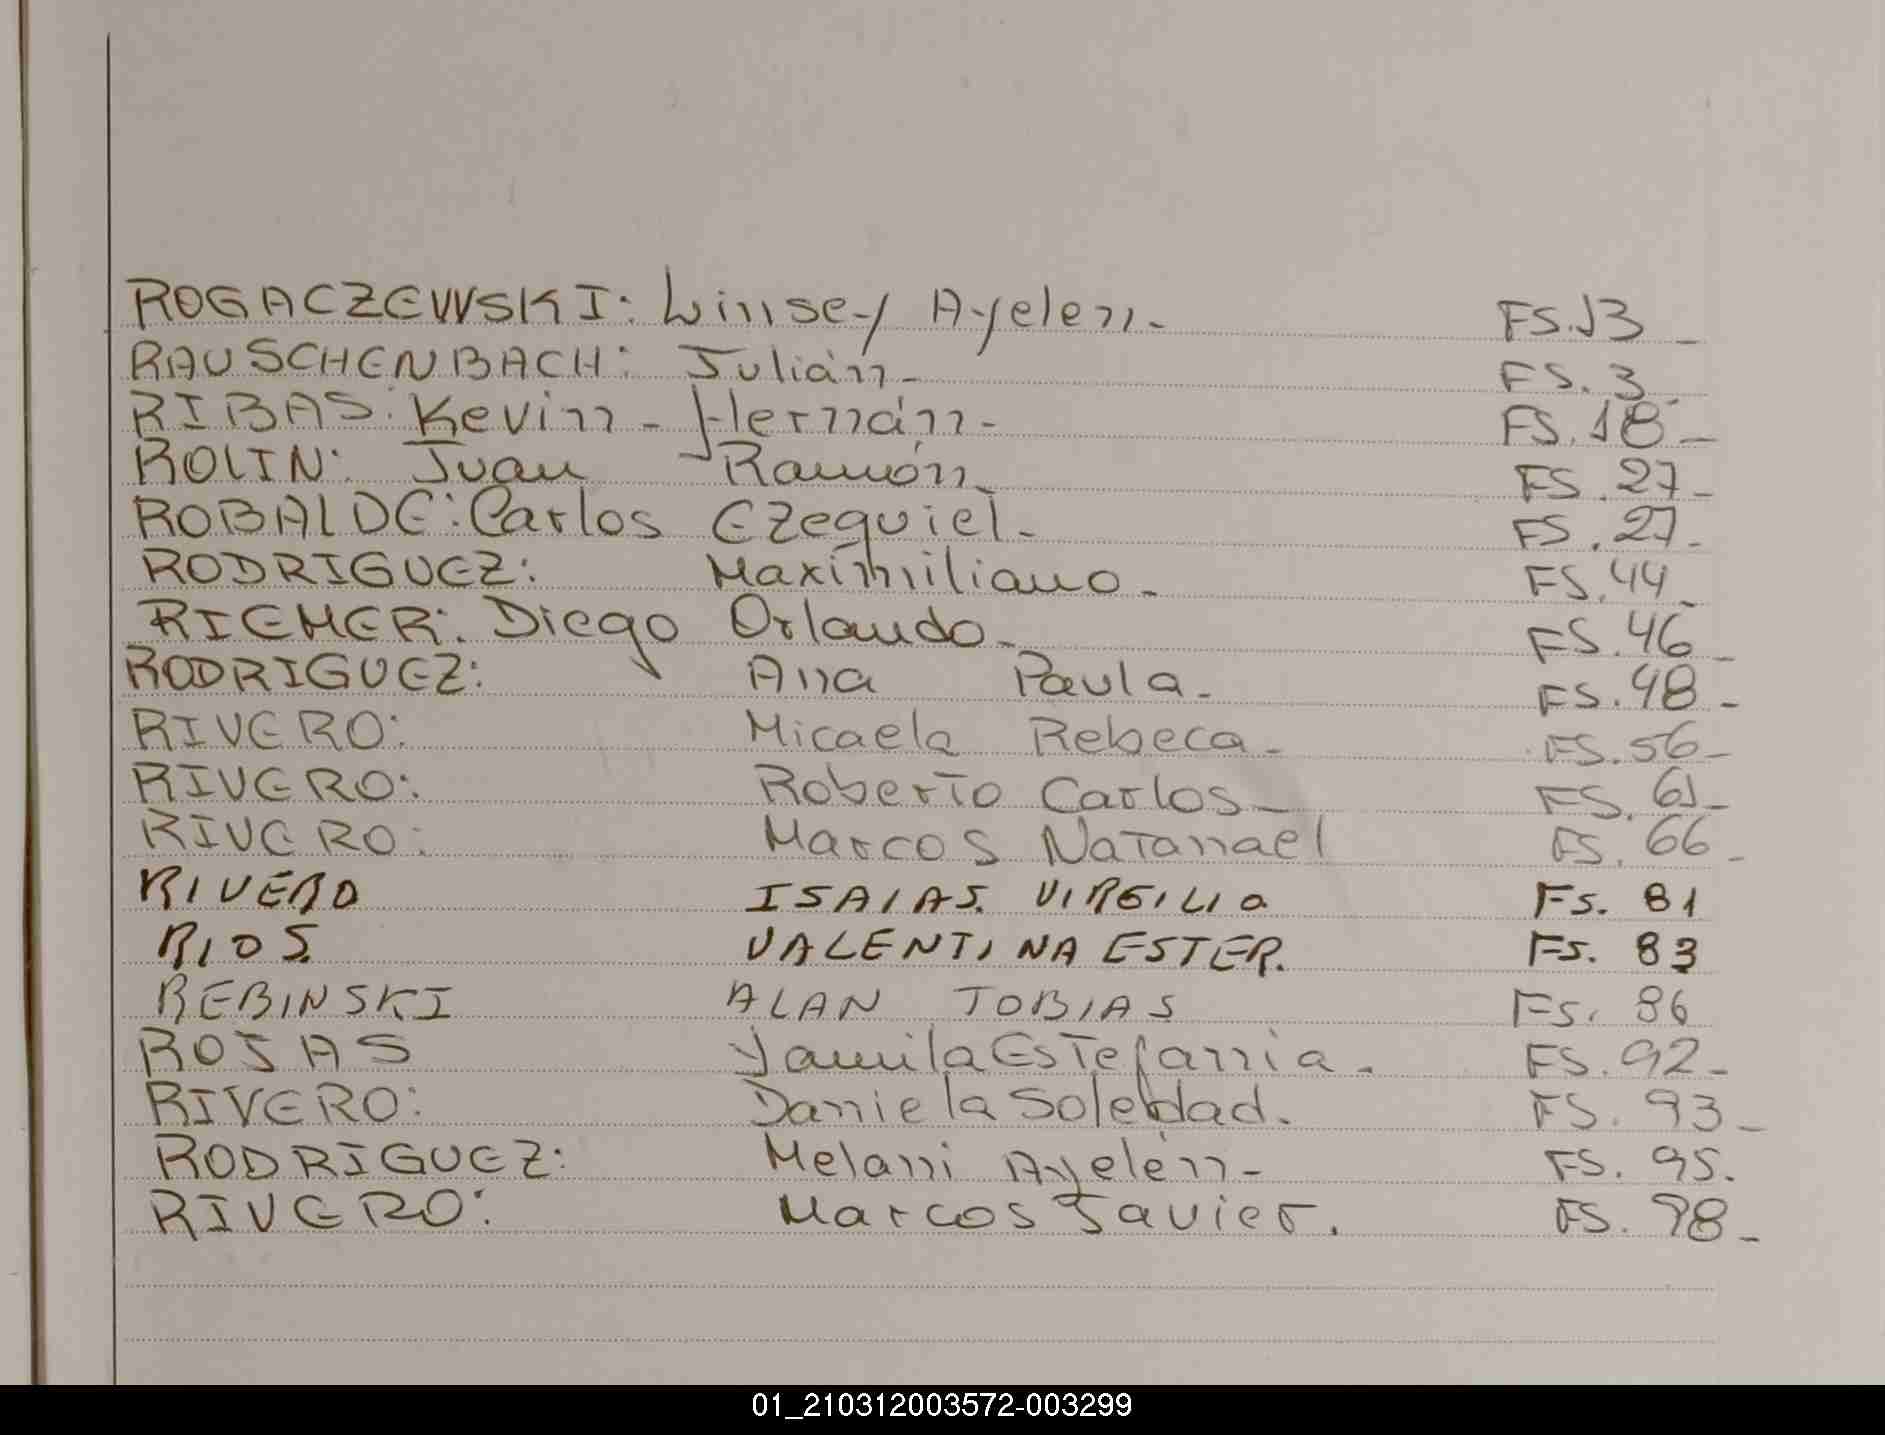 ROGACZEWSKI: Linsey Ayelen. FS. 13_
RAUSCHENBACH: Julián_ FS. 3_
RIBAS: Kevin - Hernán- FS. 18_
ROLIN: Juan Ramón_ FS. 27_
ROBALDE: Carlos Ezequiel_ FS. 27_
RODRIGUEZ: Maximiliano_ FS. 44_
RIEMER: Diego Orlando_ FS. 46_
RODRIGUEZ: Ana Paula_ FS. 48_
RIVERO: Micaela Rebeca_ FS. 56_
RIVERO: Roberto Carlos_ FS. 61_
RIVERO: Marcos Natanael FS. 66_
RIVERO ISAIAS. VIRGILIO Fs. 81
RIOS. VALENTINA ESTER. Fs. 83
REBINSKI ALAN TOBIAS Fs. 86
ROJAS Yamila Estefania. FS. 92_
RIVERO: Daniela Soledad. FS. 93_
RODRIGUEZ: Melani Ayelén_ FS. 95.
RIVERO: Marcos Javier. FS. 98_
01_210312003572-003299